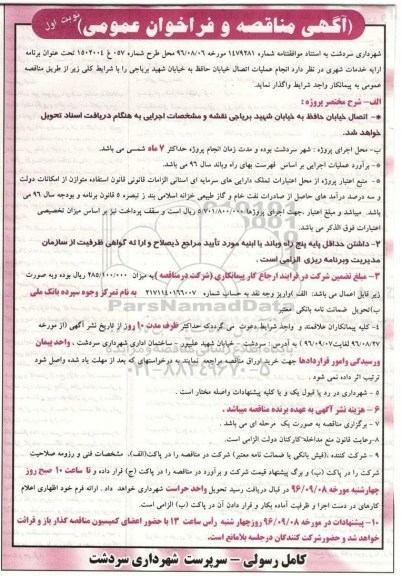 (آگهی مناقصه و فراخوان عمومی)
نوبت اول
شهرداری سردشت به استناد موافقتنامه شماره ۱۴۷۹۲۸۱ مورخه ۹۶/۰۸/۰۶ محل طرح شماره ۰۵۷ غ ۱۵۰۲۰۰۴ تحت عنوان برنامه
ارایه خدمات شهری در نظر دارد انجام عملیات اتصال خیابان حافظ به خیابان شهید بریاجی را با شرایط کلی زیر از طریق مناقصه
عمومی به پیمانکار واجد شرایط واگذار نماید.
الف- شرح مختصر پروژه :
*- اتصال خیابان حافظ به خیابان شهید بریاجی نقشه و مشخصات اجرایی به هنگام دریافت اسناد تحویل
خواهد شد.
ب- محل اجرای پروژه : شهر سردشت بوده و مدت زمان انجام پروژه حداکثر ۷ ماه شمسی می باشد.
*- برآورد عملیات اجرایی بر اساس فهرست بهای راه وباند سال ۹۶ می باشد.
*- منبع اعتبار پروژه از محل اعتبارات تملک دارایی های سرمایه ای استانی الزامات قانونی قانون استفاده متوازن از امکانات دولت
و سه درصد درآمد های حاصل از صادرات نفت خام و گاز طبیعی خزانه اسلامی بند ز تبصره ۵ قانون برنامه و بودجه سال ۹۶ می
باشد. میباشد و مبلغ اعتبار ،جهت اجرای پروژها ۵/۷۰۱/۸۰۰/۰۰۰ ریال است و سقف پرداخت نیز بر اساس میزان تخصیص
اعتبارات فوق الذکر می باشد.
۲- داشتن حداقل پایه پنج راه وباند یا ابنیه مورد تأیید مراجع ذیصلاح و ارائه گواهی ظرفیت از سازمان
مدیریت وبرنامه ریزی الزامی است .
۳- مبلغ تضمین شرکت در فرایند ارجاع کار پیمانکاری (شرکت درمناقصه )به میزان ۲۸۵/۱۰۰/۰۰۰ ریال بوده وبه صورت
زیر قابل اعمال می باشد: الف )واریز وجه نقد به حساب شماره ۲۱۷۱۱۴۰۱۶۶۰۰۷ به نام تمرکز وجوه سپرده بانک ملی
ب)تحویل ضمانت نامه بانکی معتبر.
۴- کلیه پیمانکاران علاقمند و واجد شرایط دعوت می گرددکه حداکثر ظرف مدت ۱۰ روز از تاریخ نشر آگهی (از مورخه
۹۶/۰۸/۲۷ لغایت ۹۶/۰۹/۰۷) به آدرس : سردشت - خیابان شهید علیپور - ساختمان اداری شهرداری سردشت ، واحد پیمان
ورسیدگی وامور قراردادها جهت خرید اوراق مناقصه مراجعه نمایند به درخواستهای که بعد از مهلت یاد شده واصل شود
ترتیب اثر داده نمی شود .
۵- شهرداری در رد یا قبول یک و یا کلیه پیشنهادات واصله مختار است .
۶ - هزینه نشر آگهی به عهده برنده مناقصه میباشد .
۷ - برگزاری مناقصه به صورت یک مرحله ای می باشد .
۸-رعایت قانون منع مداخله کارکنان دولت الزامی است.
۹- شرکت کننده ،(فیش بانکی یا ضمانت نامه معتبر) شرکت در مناقصه را در پاکت(الف)، مشخصات فنی و رزومه صلاحیت
شرکت را در پاکت (ب) و برگ پیشنهاد قیمت شرکت و برآورد در مناقصه را در پاکت (ج) قرار داده و تا ساعت ۱۰ صبح روز
چهارشنبه مورخه ۹۶/۰۹/۰۸ در قبال دریافت رسید تحویل واحد حراست شهرداری خواهد داد . ارائه فرم خود اظهاری اعلام
کارهای در دست اجرا و ظرفیت آماده بکار و قرار دادن آن در پاکت (ب) الزامی است.
۱۰- پیشنهادات در مورخه ۹۶/۰۹/۰۸ روز چهار شنبه رأس ساعت ۱۳ با حضور اعضای کمیسیون مناقصه گذار باز و قرائت
خواهد شد و حضورشرکت کنندگان درجلسه بلامانع است.
کامل رسولی - سرپرست شهرداری سردشت